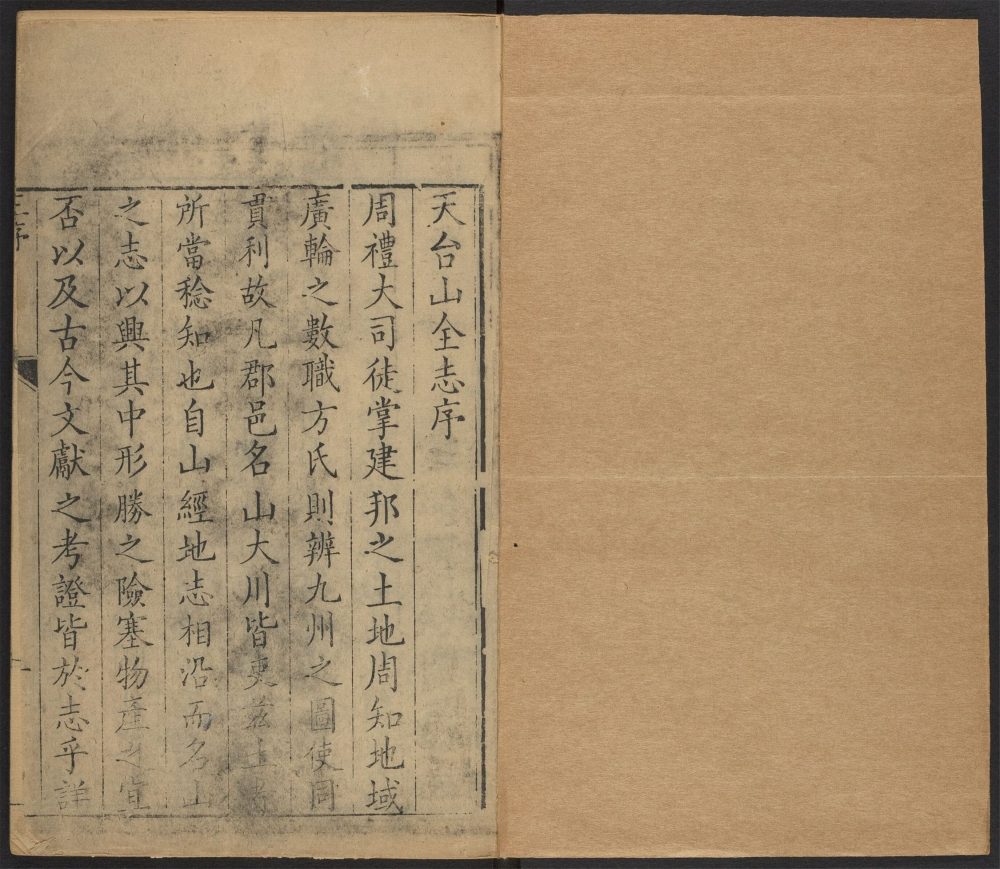 天台山全志序
周禮大司徒掌建邦之土地周知地域
廣輪之數職方氏則辨九州之圖使同
貫利故凡郡邑名山大川皆吏茲土者
所當稔知也自山經地志相沿而名山
之志以興其中形勝之險塞物產之宜
否以及古今文獻之考證皆於志乎詳
序
一